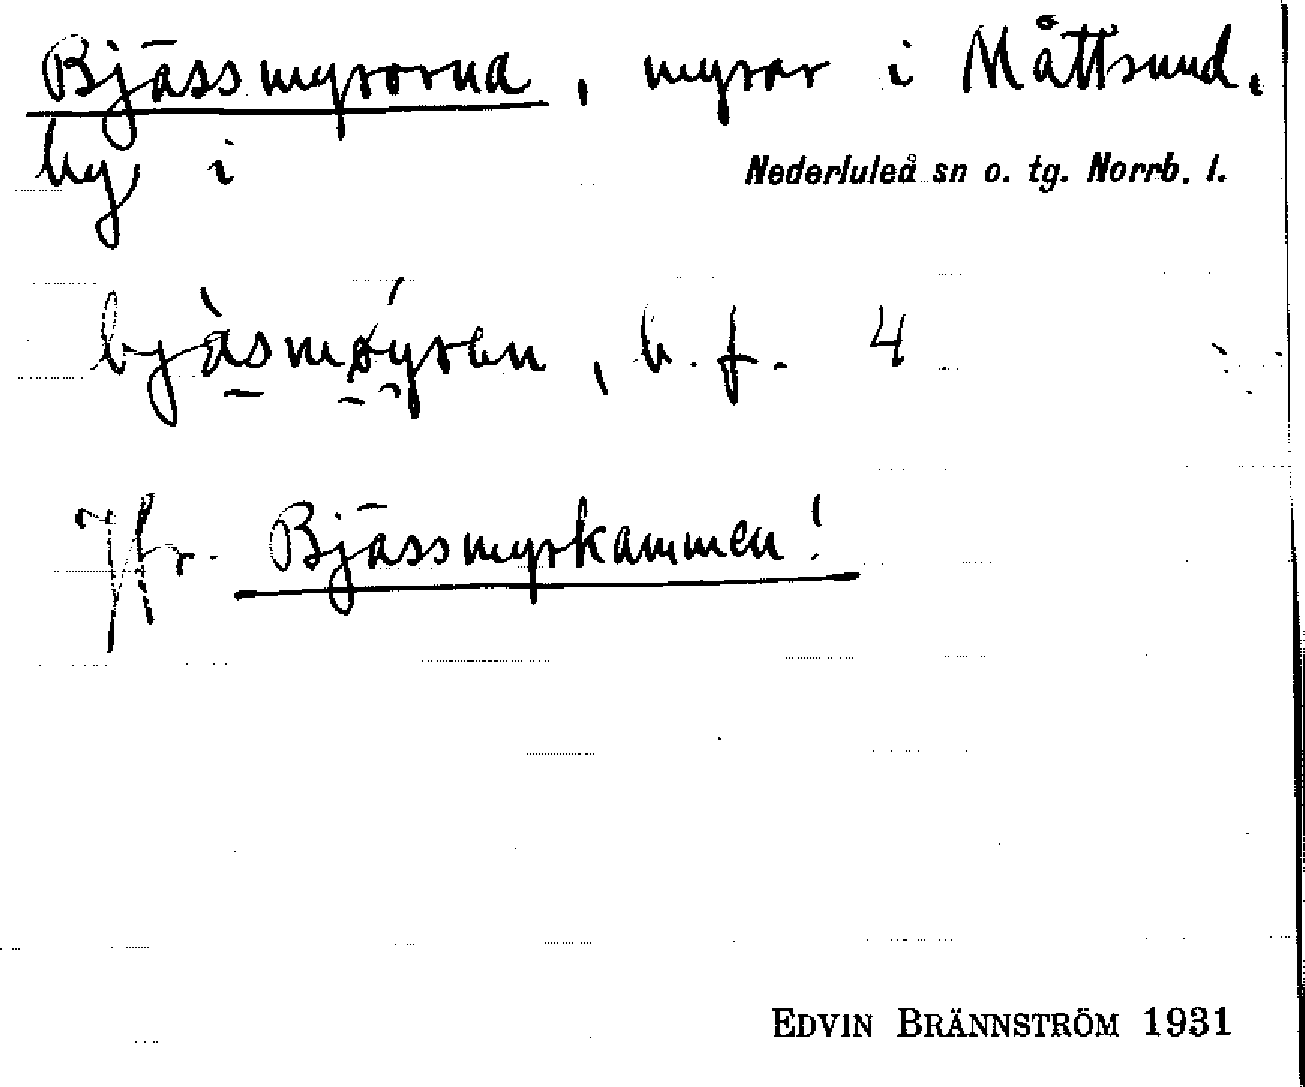 Bjässmyrorna, myrar i Måttsund,
by i Nederluleå sn o. tg. Norrb. l.
bjàsmøýren, b. f. 4
Jfr. Bjässmyrkammen!
EDVIN BRÄNNSTRÖM 1931